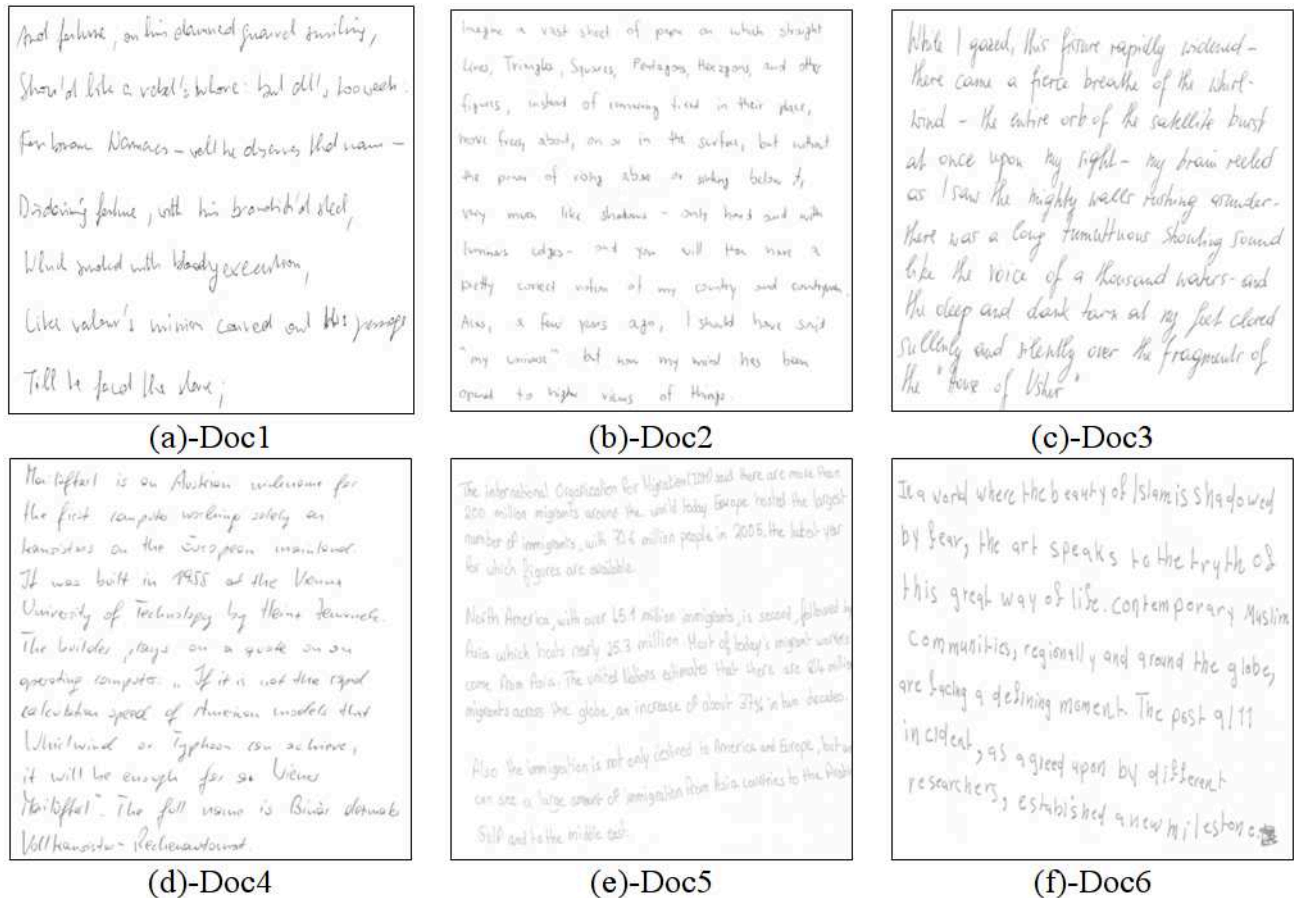 And fortune, on his damned quarrel smiling,
Show'd like a rebel's whore: but all's too weak.
For brave Macbeth - well he deserves that name -
Disdaining fortune, with his brandish'd steel,
Which smoked with bloody execution,
Like valour's minion carved out his passage
Till he faced the slave;
(a)-Doc1
Imagine a vast sheet of paper on which straight
Lines, Triangles, Squares, Pentagons, Hexagons, and other
figures, instead of remaining fixed in their place,
move freely about, on or in the surface, but without
the power of rising above or sinking below it,
very much like shadows - only hard and with
luminous edges - and you will then have a
pretty correct notion of my country and countrymen.
Alas, a few years ago, I should have said
"my universe" but now my mind has been
opened to higher views of things.
(b)-Doc2
While I gazed, this fissure rapidly widened -
there came a fierce breathe of the whirl-
wind - the entire orb of the satellite burst
at once upon my sight - my brain reeled
as I saw the mighty walls rushing asunder -
there was a long tumultuous shouting sound
like the voice of a thousand waters - and
the deep and dank tarn at my feet closed
sullenly and silently over the fragments of
the "House of Usher"
(c)-Doc3
Mailüfterl is an Austrian nickname for
the first computer working solely on
transistors on the European mainland.
It was built in 1955 at the Vienna
University of Technology by Heinz Zemanek.
The builder plays on a quote on an
operating computer: „If it is not the rapid
calculation speed of American models that
Whirlwind or Typhoon can achieve,
it will be enough for a Wiener
Mailüfterl". The full name is Binär dezimaler
Volltransistor-Rechenautomat.
(d)-Doc4
The International Organization for Migration (IOM) said there are more than
200 million migrants around the world today. Europe hosted the largest
number of immigrants, with 70.6 million people in 2005, the latest year
for which figures are available.
North America, with over 45.1 million immigrants, is second, followed by
Asia which hosts nearly 25.3 million. Most of today's migrant workers
come from Asia. The united Nations estimates that there are 214 million
migrants across the globe, an increase of about 37% in two decades.
Also the immigration is not only destined to America and Europe, but we
can see a large amount of immigration from Asia countries to the Arabic
Gulf and to the middle east.
(e)-Doc5
In a world where the beauty of Islam is shadowed
by fear, the art speaks to the tryth of
this great way of life. Contemporary Muslim
communities, regionally and around the globe,
are facing a defining moment. The post 9/11
incident, as agreed upon by different
researchers, established a new milestone.
(f)-Doc6